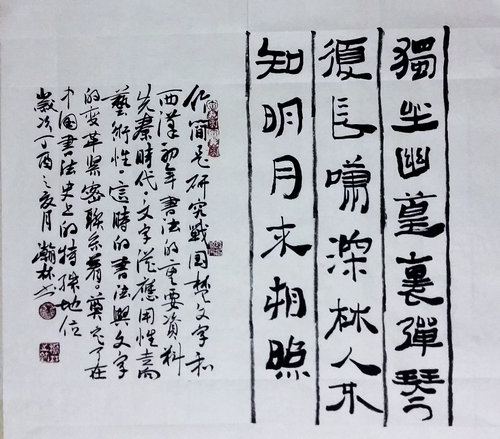 獨坐幽篁裏彈琴
復長嘯深林人不
知明月来相照
竹簡是研究戰国楚文字和
西漢初年書法的重要資料
先秦時代文字從應用性走向
藝術性。這時的書法與文字
的变革緊密联系着。奠定了在
中國書法史上的特殊地位
歲次丁酉之亥月瀚林书